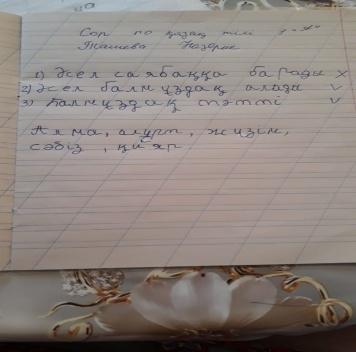 Сор по қазақ тілі 1-"А"
Ташева Назерке
1) Әсел саябаққа барады X
2) Әсел балмұздақ алады V
3) Балмұздақ тәтті V
Алма, алмұрт, жүзім,
сәбіз, қияр